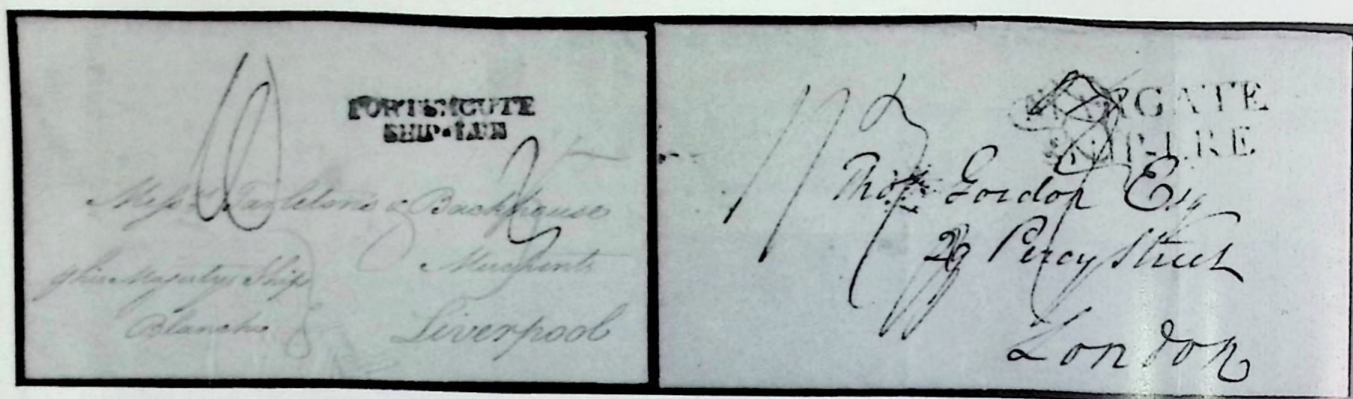 SHIP·LRE
Messrs Tarleton & Backhouse
Merchants
his Majestys Ship
Blanche
Liverpool
MARGATE
SHIP-LRE
Thos Gordon Esq
29 Percy Street
London